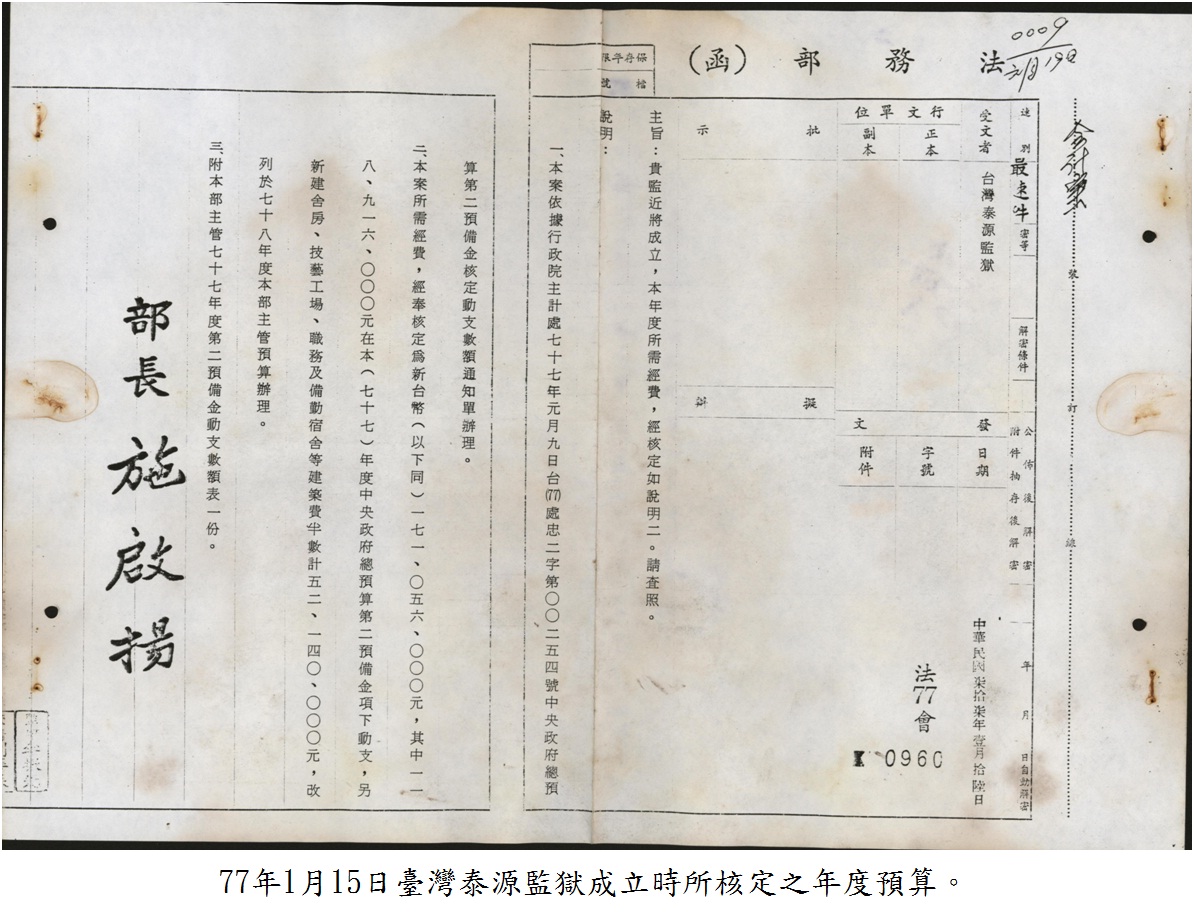 0009
元月19日
法務部（函）
保存年限
檔號
裝
訂
線
速別
最速件
密等
解密條件
公布後解密
附件抽存後解密
年月日自動解密
受文者
台灣泰源監獄
行文單位
正本
副本
發文
日期
中華民國柒拾柒年壹月拾陸日
字號
法77會
0960
附件
批示
擬辦
主旨：貴監近將成立，本年度所需經費，經核定如說明二。請查照。
說明：
一、本案依據行政院主計處七十七年元月九日台(77)處忠二字第〇〇二五四號中央政府總預
算第二預備金核定動支數額通知單辦理。
二、本案所需經費，經奉核定為新台幣（以下同）一七一、〇五六、〇〇〇元，其中一一
八、九一六、〇〇〇元在本（七十七）年度中央政府總預算第二預備金項下動支，另
新建舍房、技藝工場、職務及備勤宿舍等建築費半數計五二、一四〇、〇〇〇元，改
列於七十八年度本部主管預算辦理。
三、附本部主管七十七年度第二預備金動支數額表一份。
部長 施啟揚
77年1月15日臺灣泰源監獄成立時所核定之年度預算。